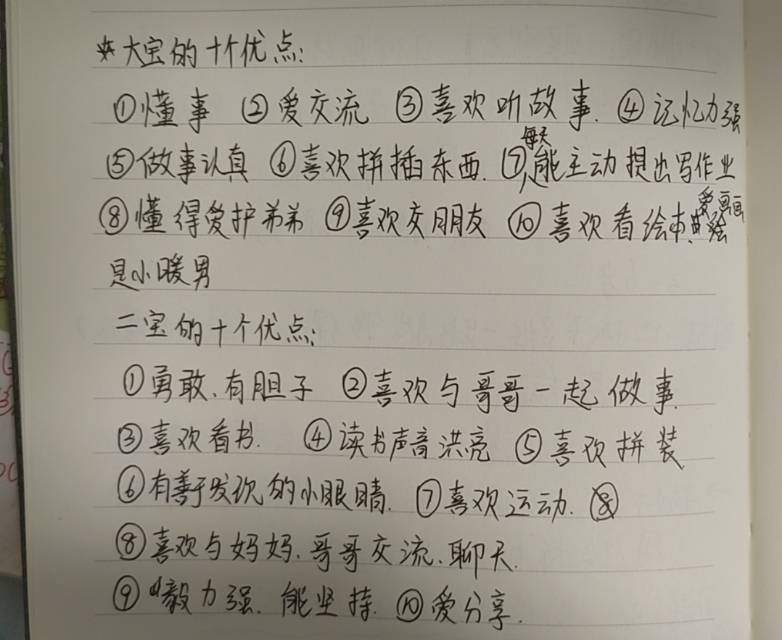 *大宝的十个优点:
①懂事 ②爱交流 ③喜欢听故事. ④记忆力强
⑤做事认真 ⑥喜欢拼插东西. ⑦每天能主动提出写作业
⑧懂得爱护弟弟 ⑨喜欢交朋友 ⑩喜欢看绘本, 爱画画
是小暖男
二宝的十个优点:
①勇敢、有胆子 ②喜欢与哥哥一起做事.
③喜欢看书. ④读书声音洪亮 ⑤喜欢拼装
⑥有善于发现的小眼睛. ⑦喜欢运动.
⑧喜欢与妈妈、哥哥交流、聊天.
⑨毅力强、能坚持. ⑩爱分享.